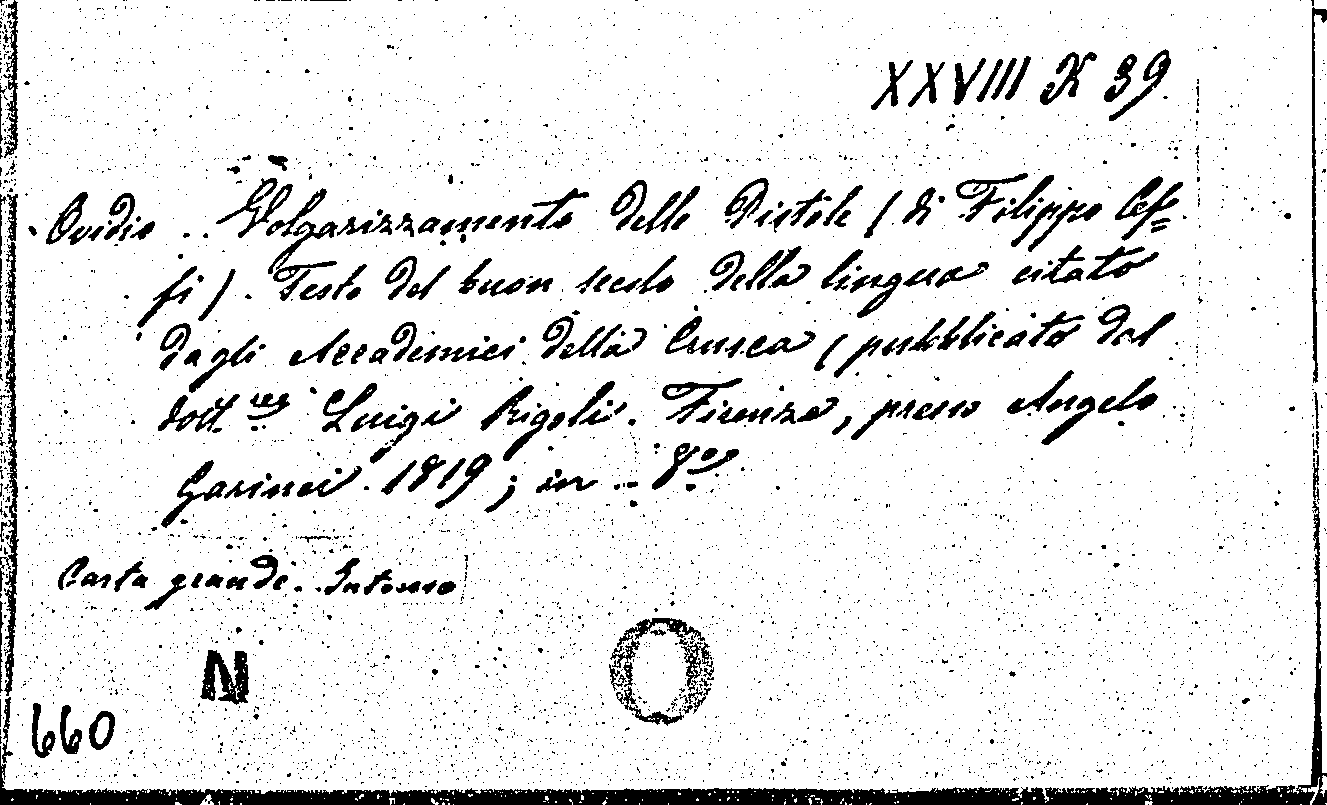 XXVIII K 39
Ovidio .. Volgarizzamento delle Pistole (di Filippo Cef=
fi). Testo del buon secolo della lingua citato
dagli Accademici della Crusca (pubblicato dal
dott.
Luigi Rigoli. Firenze, presso Angelo
Garinei. 1819; in - 8º
Carta grande. Intonso
N
660